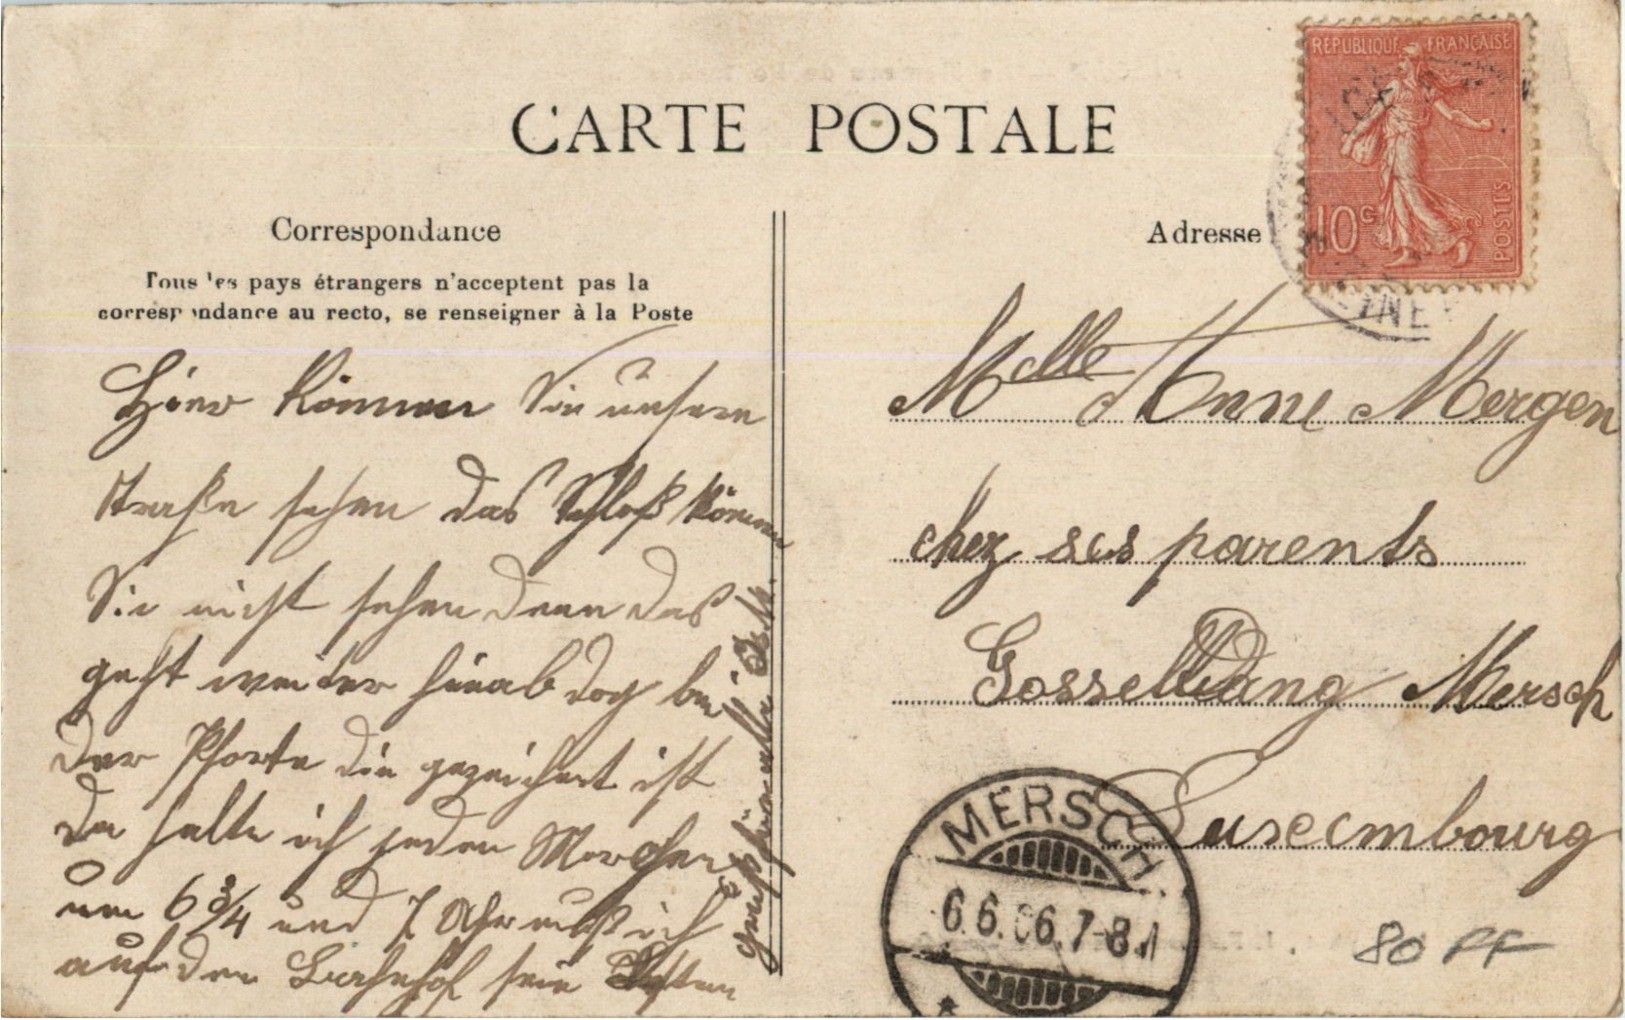 CARTE POSTALE
RÉPUBLIQUE FRANÇAISE
10c
POSTES
Correspondance
Adresse
Tous les pays étrangers n'acceptent pas la
correspondance au recto, se renseigner à la Poste
Hier können Sie unsere
Straße sehen das Schloß können
Sie nicht sehen denn das
geht weiter hinab doch bei
der Pforte die gezeichnet ist
da halte ich jeden Morgen
um 6 3/4 und 7 Uhr muß ich
auf den Bahnhof sein
Melle Anne Mergen
chez ses parents
Gosseldang Mersch
Luxembourg
MERSCH
6.6.06.7-8
80 FF